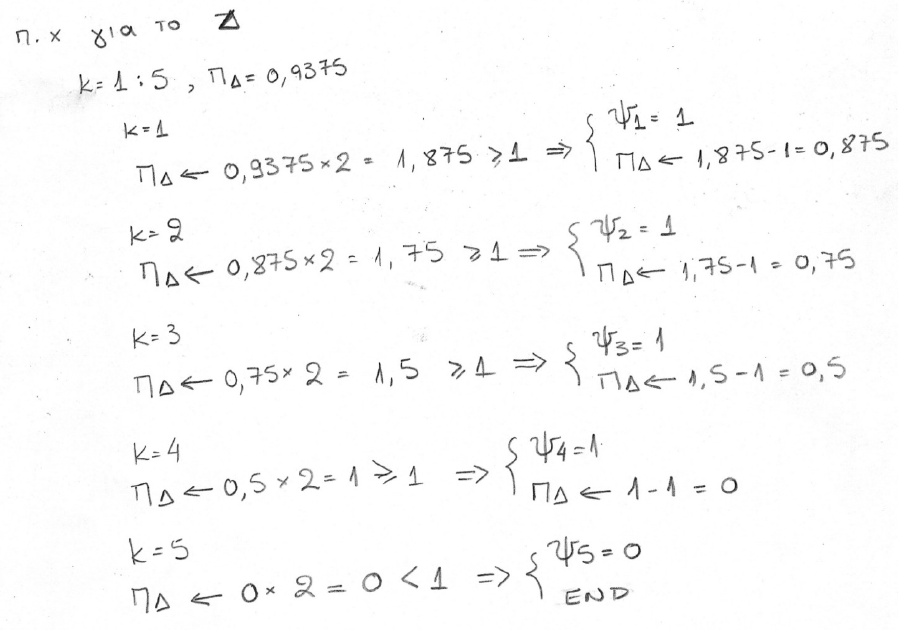 π.χ για το Δ
k=1:5, ΠΔ=0,9375
k=1
ΠΔ ← 0,9375×2 = 1,875 ≥1 ⇒ { Ψ1 = 1
ΠΔ ← 1,875-1=0,875
k=2
ΠΔ ← 0,875×2 = 1,75 ≥1 ⇒ { Ψ2 = 1
ΠΔ ← 1,75-1 = 0,75
k=3
ΠΔ ← 0,75×2 = 1,5 ≥1 ⇒ { Ψ3=1
ΠΔ ← 1,5-1 = 0,5
k=4
ΠΔ ← 0,5×2=1 ≥1 ⇒ { Ψ4=1
ΠΔ ← 1-1 = 0
k=5
ΠΔ ← 0×2 = 0 <1 ⇒ { Ψ5=0
END